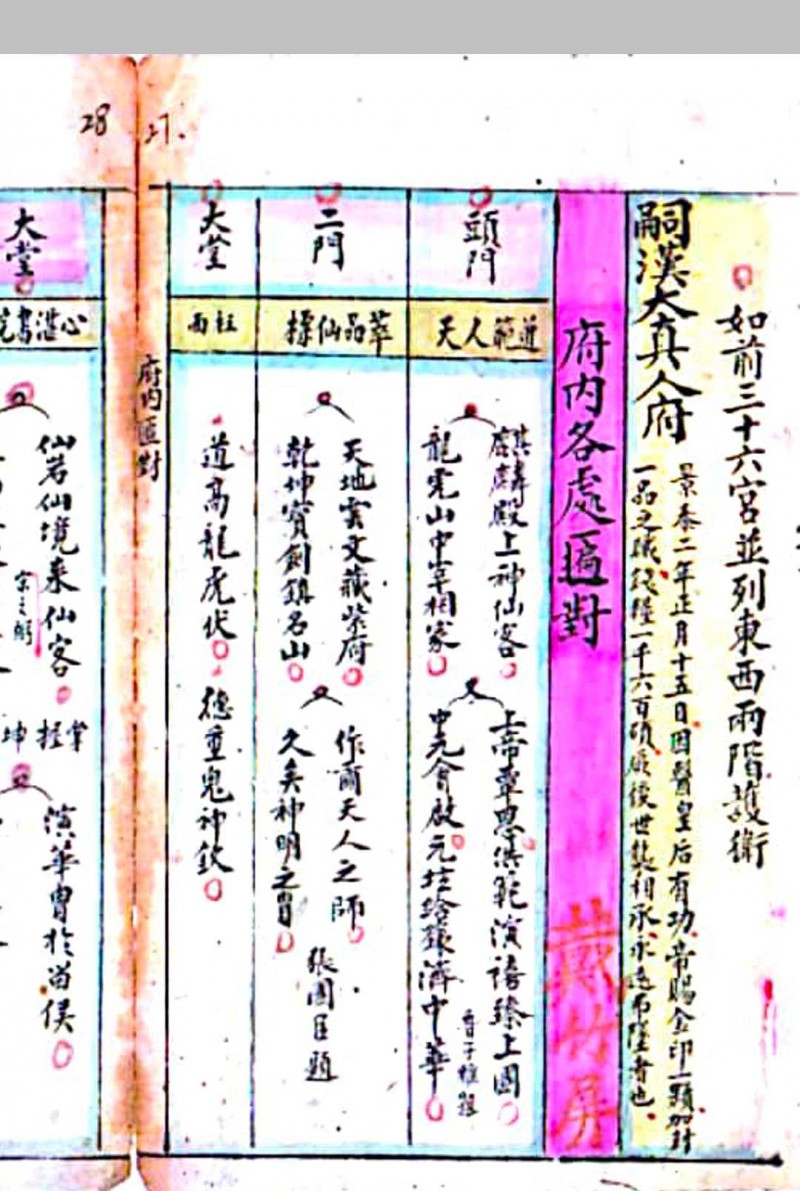 28
27.
如前三十六宮並列東西兩階護衛
嗣漢大真人府
景泰二年正月十五日因醫皇后有功帝賜金印一顆加封
一品之職
一千六百碩
後世襲相承永遠
者也
府內各處匾對
戴竹屏
頭門
道範人天
麒麟殿上神仙客
龍虎山中宰相家
上帝覃恩洪範演疇臻上國
中元會啟元
中華
二門
萃品仙標
天地雲文藏紫府
乾坤寶劍鎮名山
作爾天人之師
久矣神明之胄
張國臣題
大堂
柱面
道高龍虎伏
德重鬼神欽
府內匾對
大堂
心湛書
仙岩仙境來仙客
宗之弼
掌握
坤
演華胄於留侯